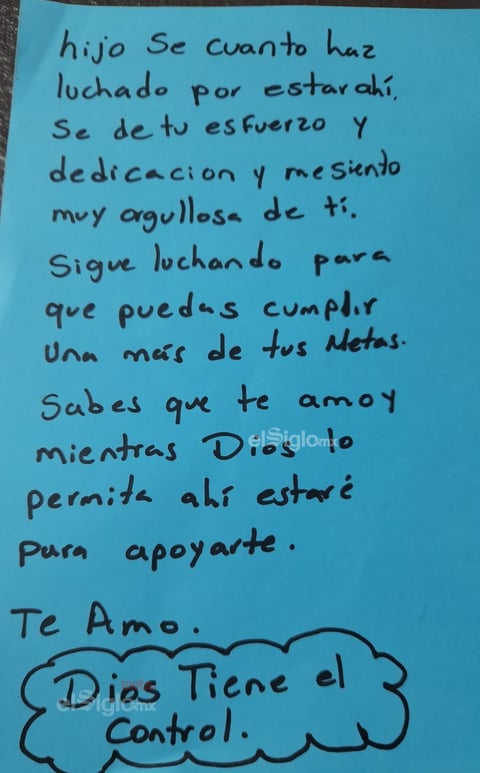 hijo Se cuanto haz
luchado por estar ahí.
Se de tu esfuerzo y
dedicacion y me siento
muy orgullosa de tí.
Sigue luchando para
que puedas cumplir
una más de tus Metas.
Sabes que te amo y
mientras Dios lo
elSiglo.mx
permita ahí estaré
para apoyarte.
Te Amo.
Dios Tiene el
elSiglo.mx
control.